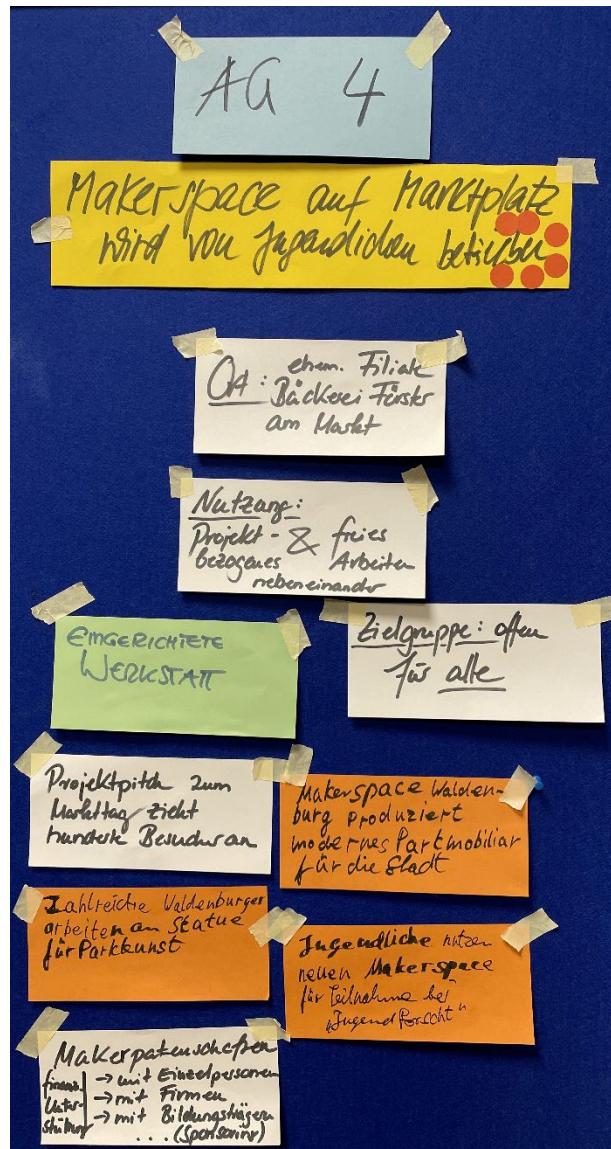 AG 4
Makerspace auf Marktplatz
wird von Jugendlichen betrieben
Ort: ehem. Filiale
Bäckerei Förster
am Markt
Nutzung:
Projekt- & freies
bezogenes Arbeiten
nebeneinander
EINGERICHTETE
WERKSTATT
Zielgruppe: offen
für alle
Projektpitch zum
Markttag zieht
hunderte Besucher an
Makerspace Walden-
burg produziert
modernes Parkmobiliar
für die Stadt
Zahlreiche Waldenburger
arbeiten an Statue
für Parkkunst
Jugendliche nutzen
neuen Makerspace
für Teilnahme bei
"Jugend forscht"
Makerpatenschaften
finanz. → mit Einzelpersonen
Unter- → mit Firmen
stützung → mit Bildungsträgern
... (Sponsoring)